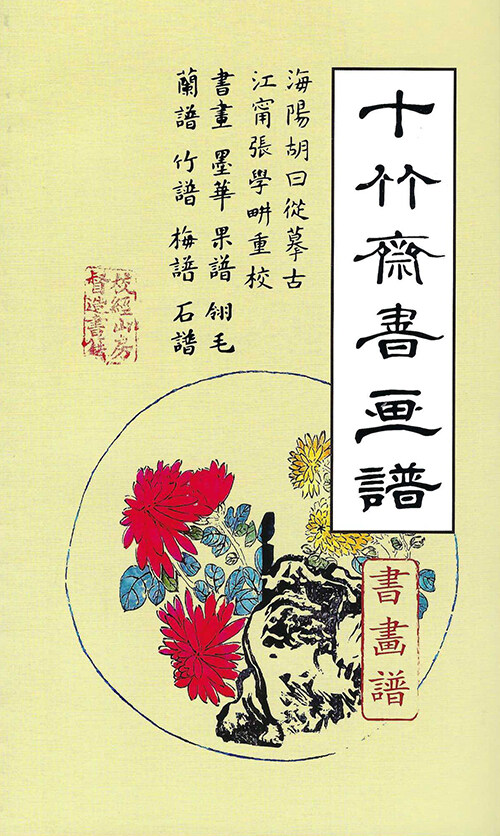 十竹齋書画譜
海陽胡曰從摹古
江甯張學畊重校
書畫 墨華 果譜 翎毛
蘭譜 竹譜 梅譜 石譜
校經山房
督造書籍
書畫譜